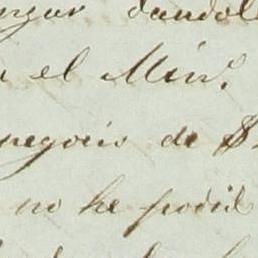 dandole
el Min.
negocio de $
no he podid